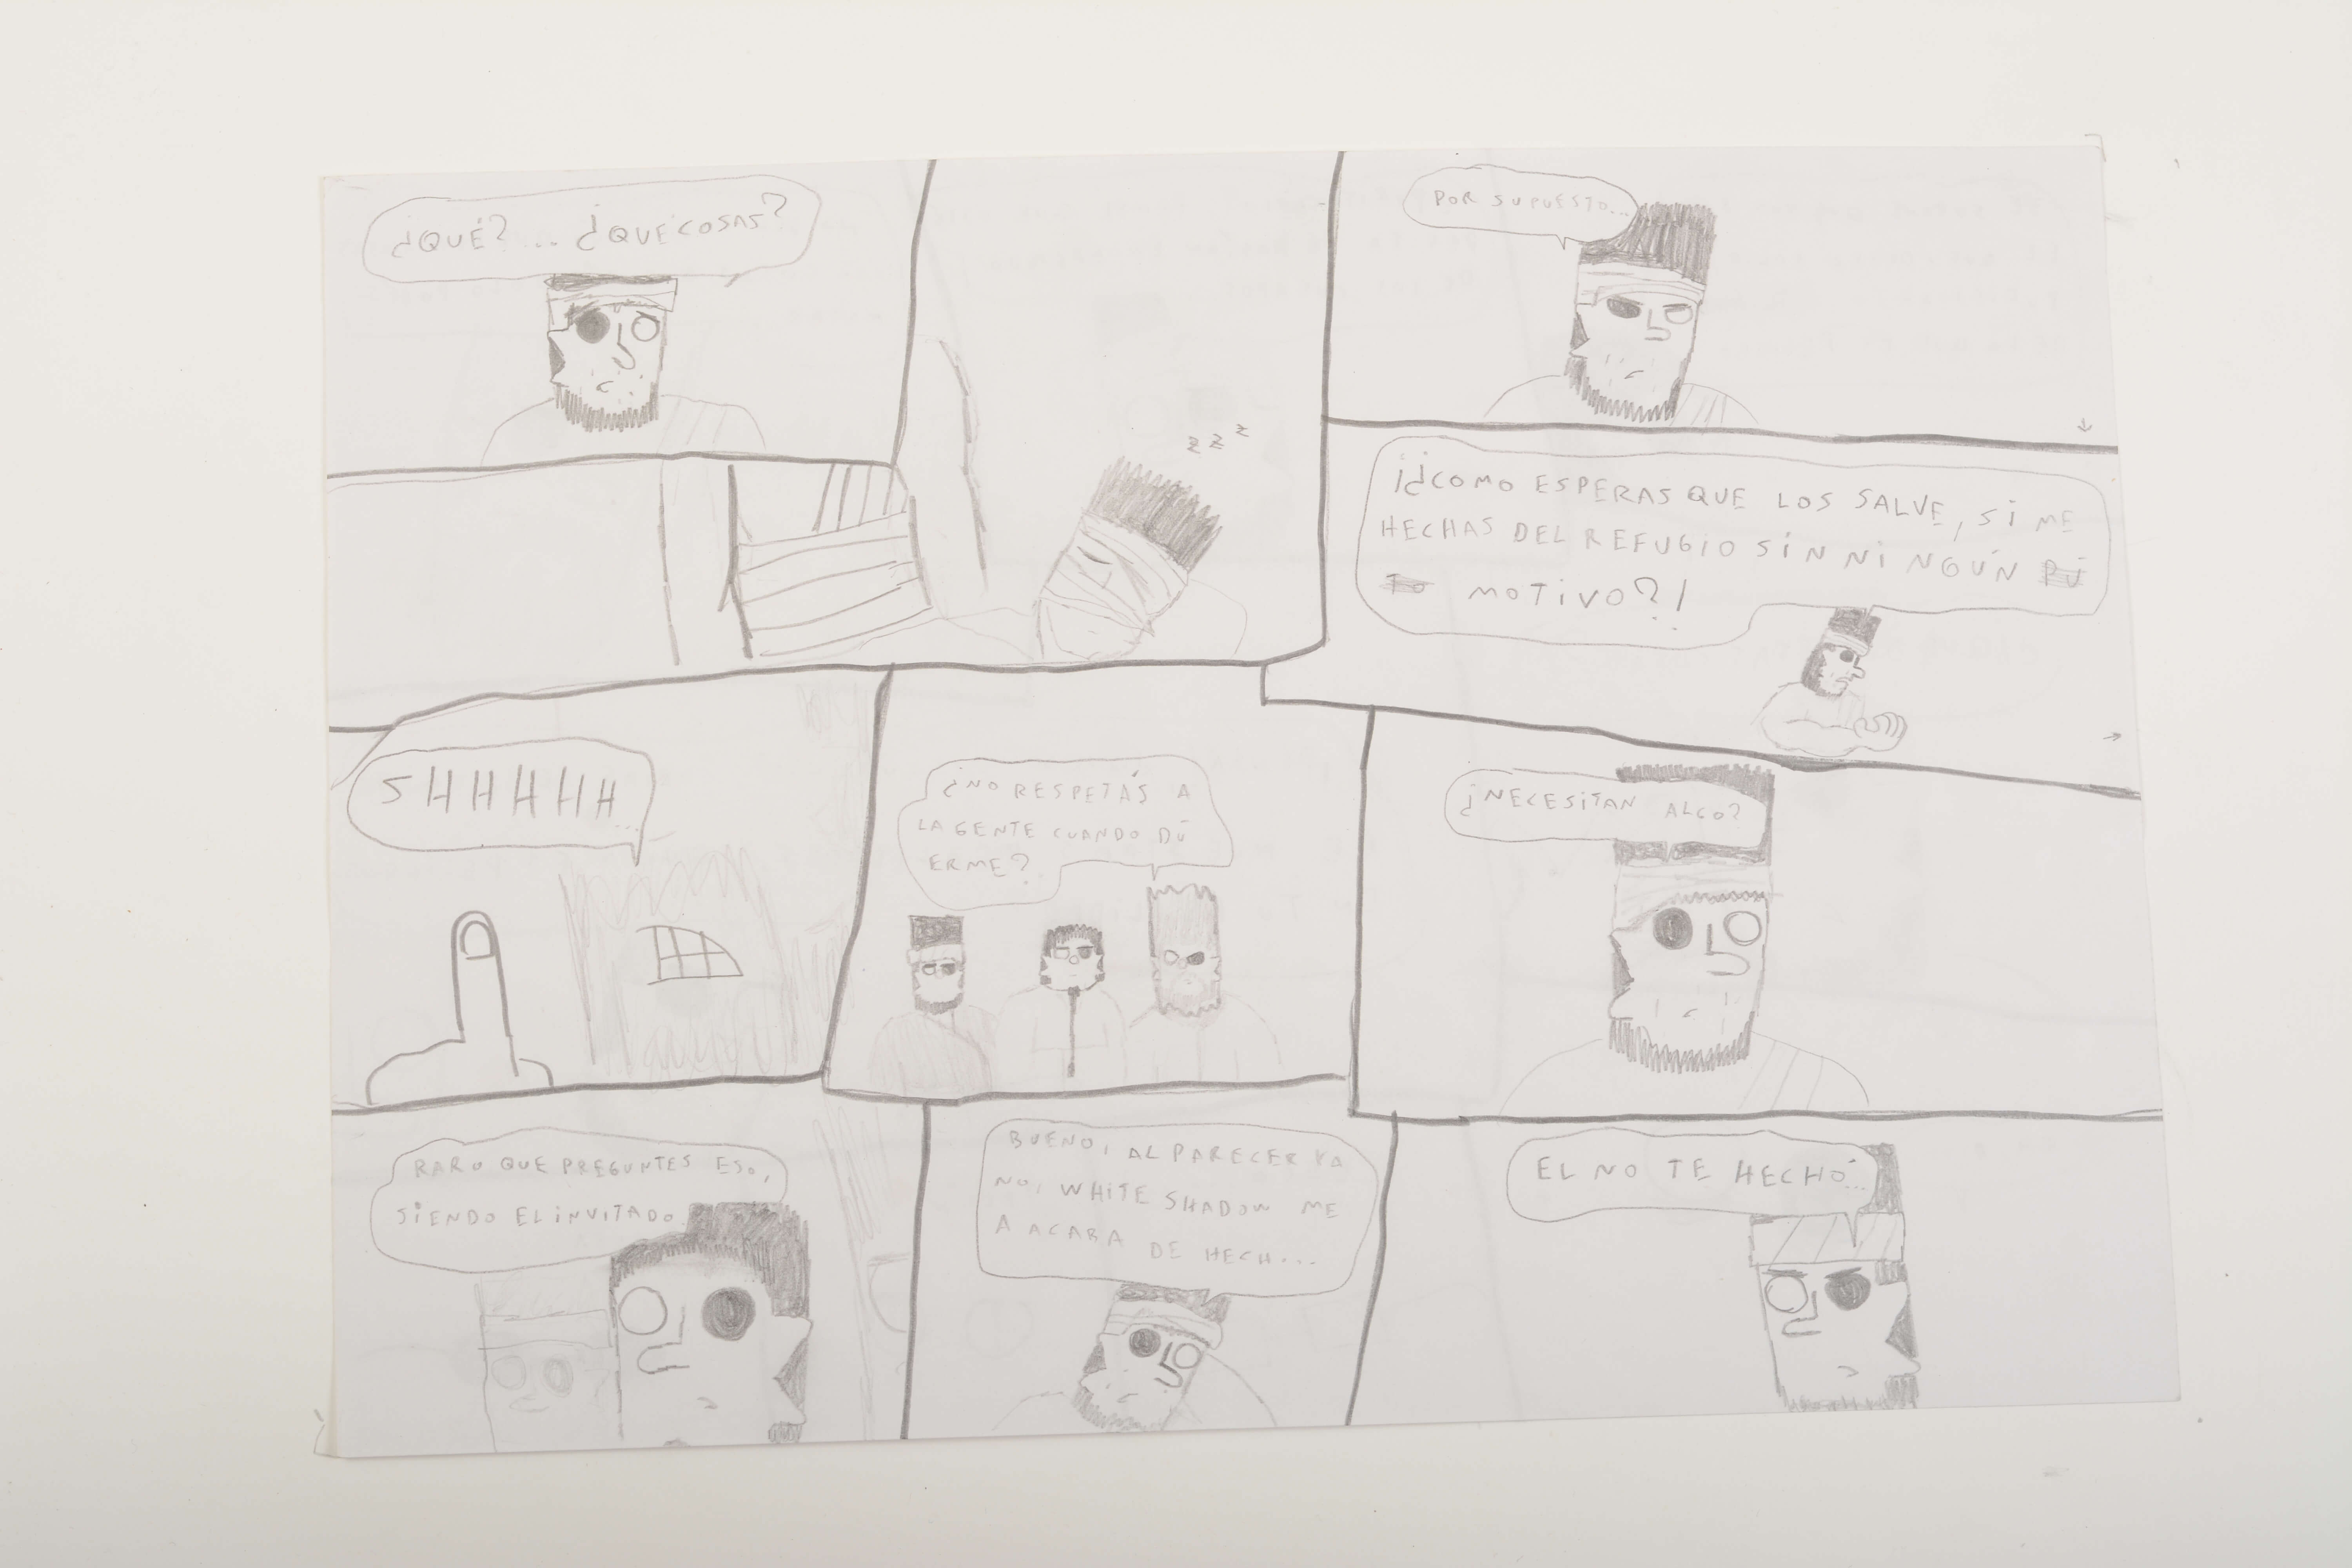 ¿QUÉ? ... ¿QUÉ COSAS?
z z z
POR SUPUESTO...
¡¿COMO ESPERAS QUE LOS SALVE, SI ME
HECHAS DEL REFUGIO SIN NINGÚN
MOTIVO?!
SHHHHH...
¿NO RESPETÁS A
LA GENTE CUANDO DU
ERME?
¿NECESITAN ALGO?
RARO QUE PREGUNTES ESO,
SIENDO EL INVITADO.
BUENO, AL PARECER YA
NO, WHITE SHADOW ME
A ACABA DE HECH...
EL NO TE HECHÓ...